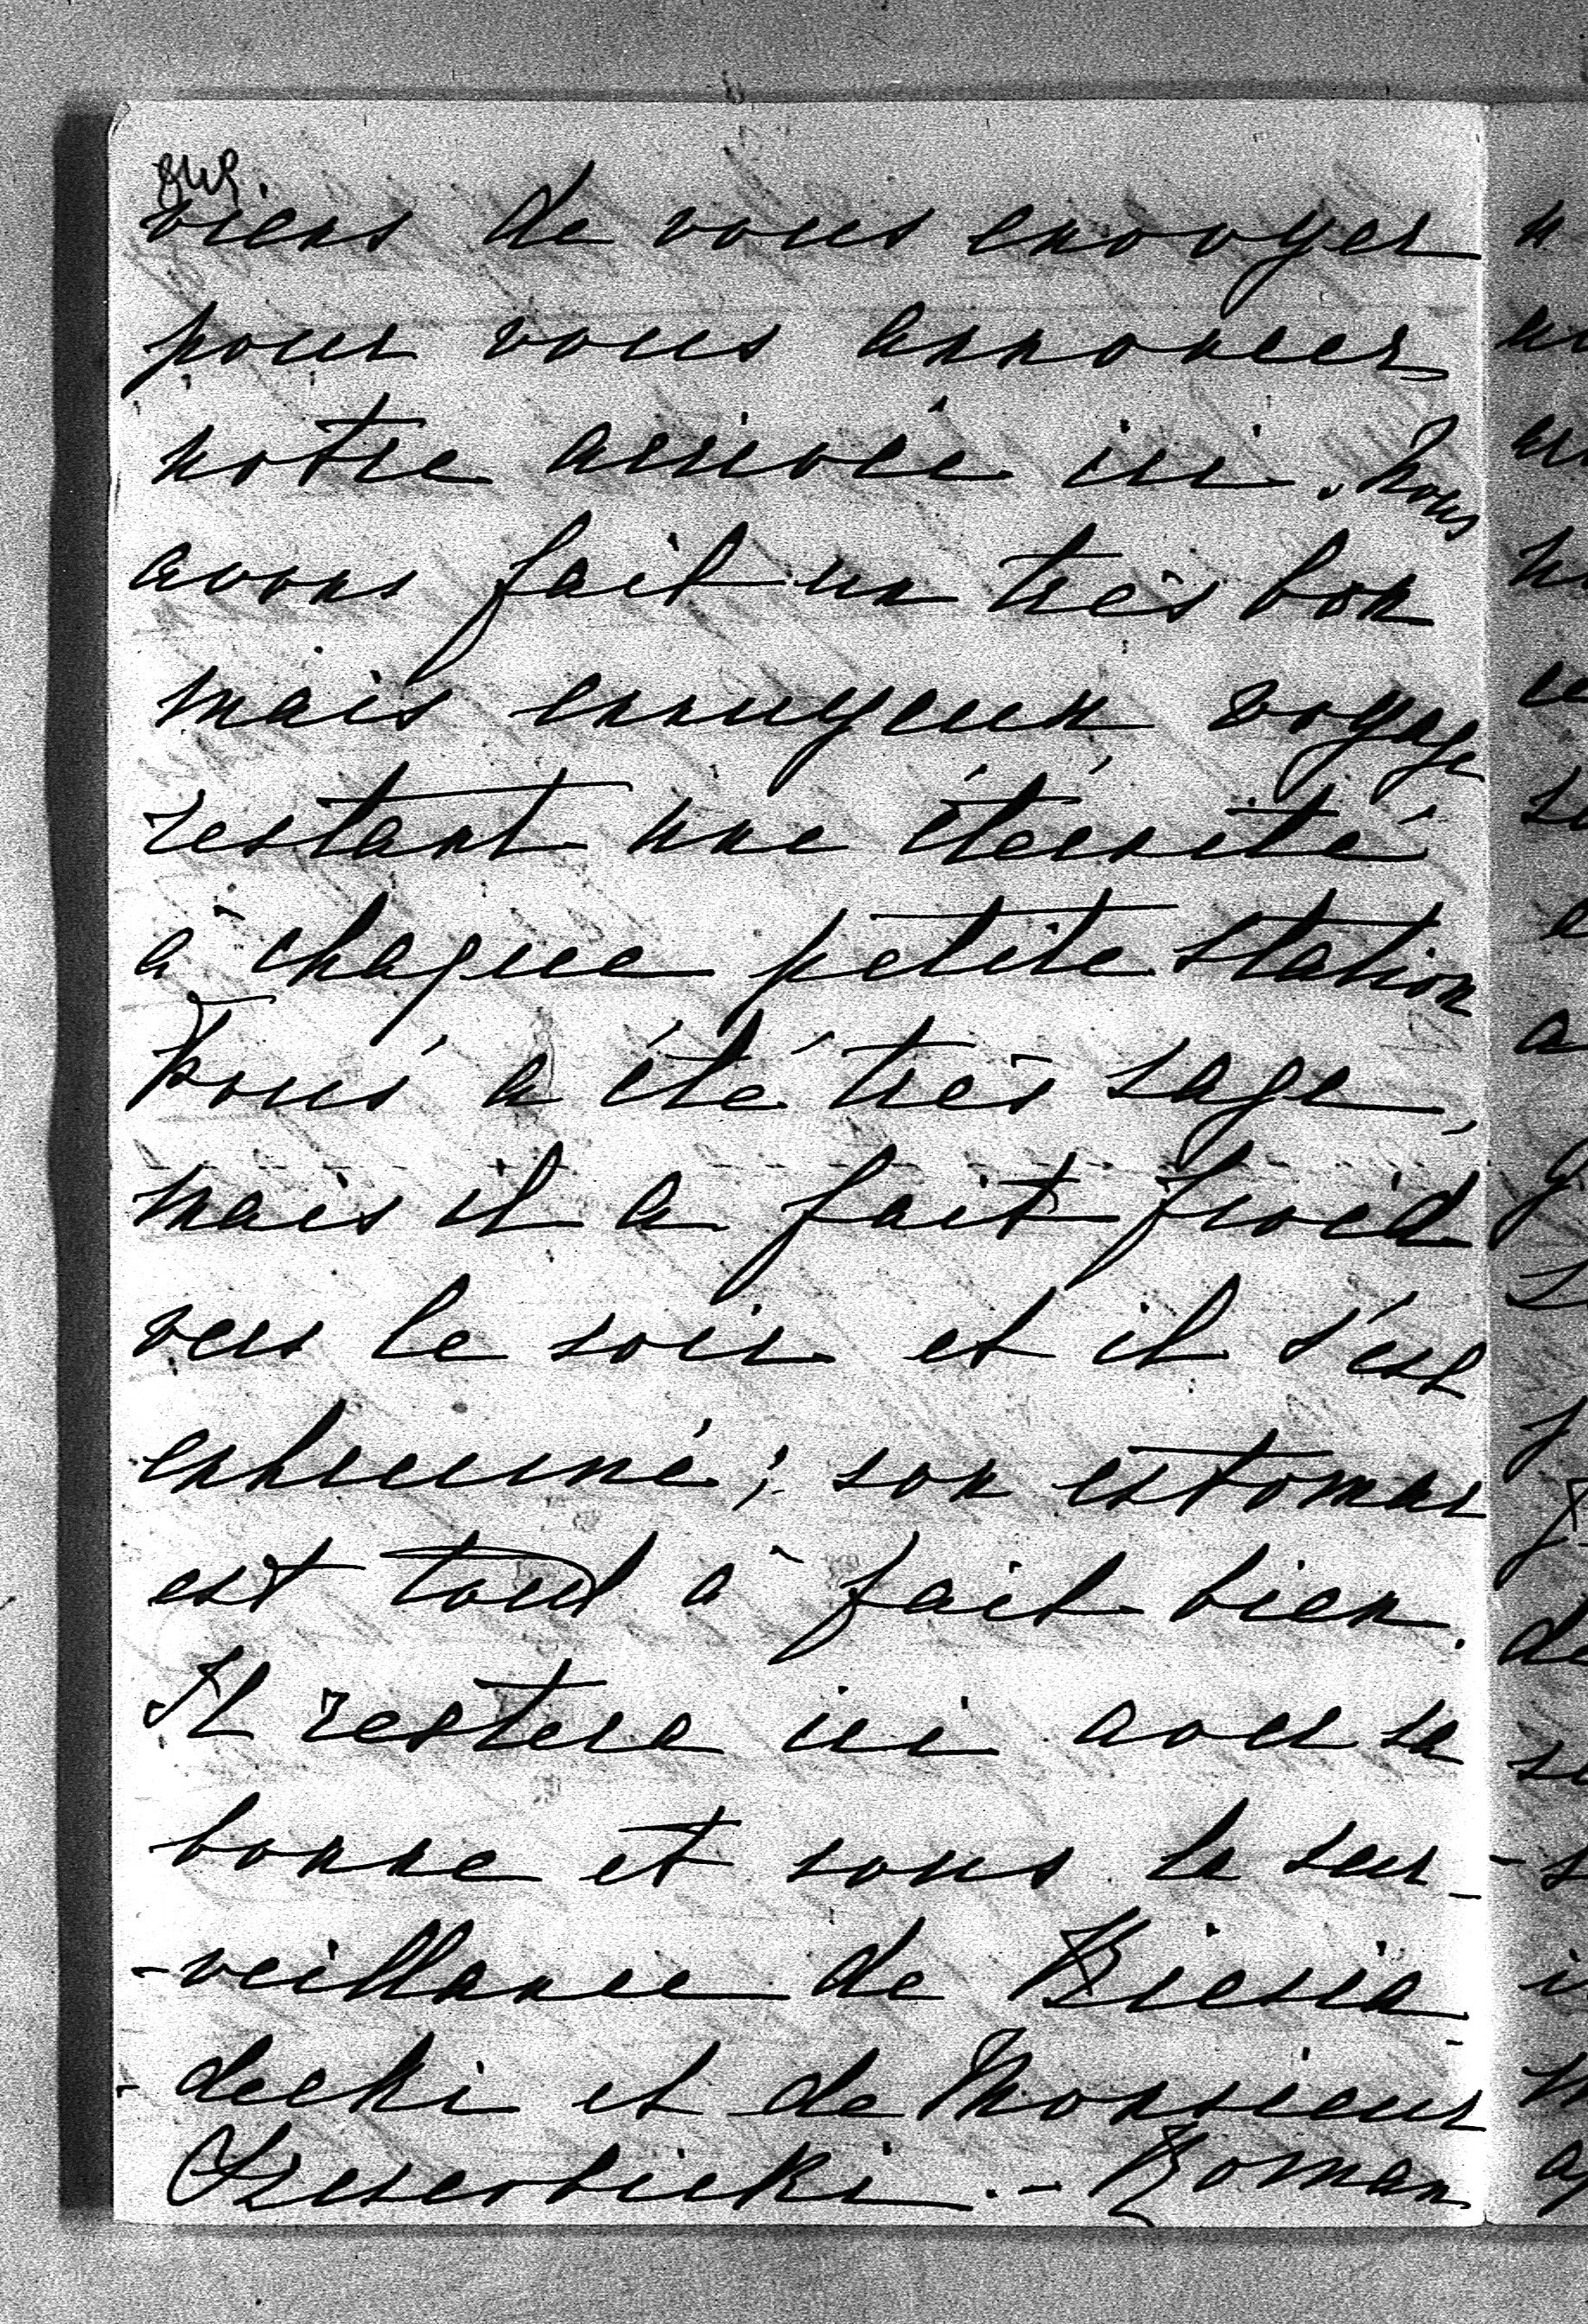 viens de vous envoyer
pour vous annoncer
notre arrivée ici. Nous
avons fait un très bon
mais ennuyeux voyage
restant une éternité
à chaque petite station
a été très sage,
mais il a fait froid
vers le soir et il s'est
enrhumé; son estomac
est tout à fait bien.
Il restera ici avec sa
bonne et sous la sur-
-veillance de Biesia-
-decki et de Monsieur
Roman